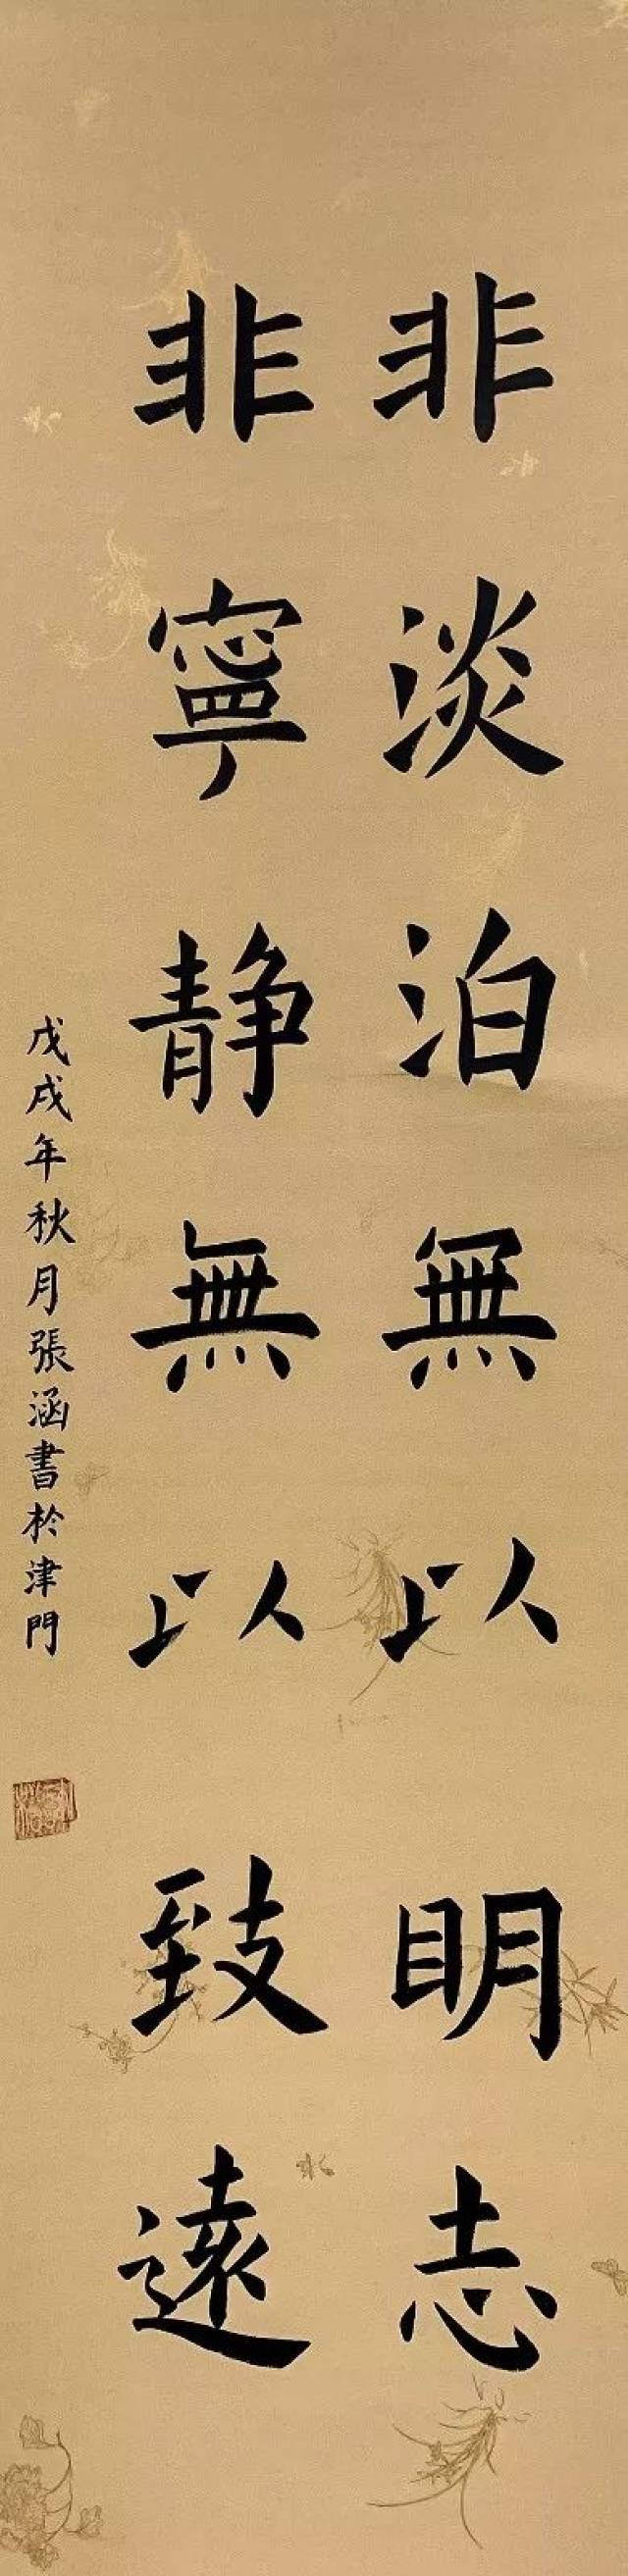 非淡泊無以明志
非寧静無以致遠
戊戌年秋月張涵書於津門